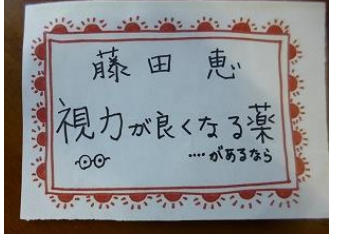 藤田 恵
視力が良くなる薬
....があるなら